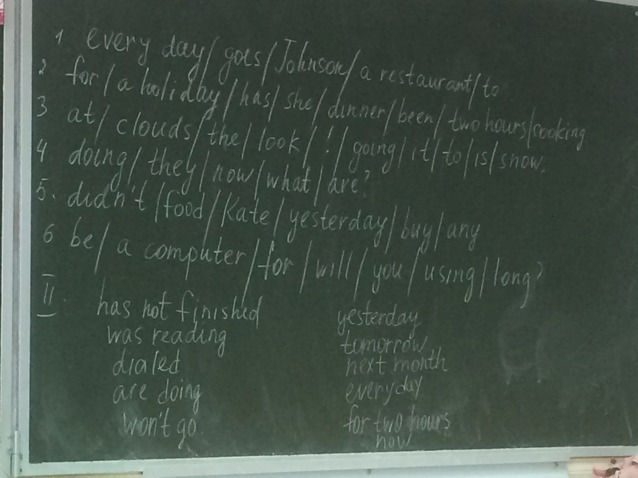 1 every day/ goes/ Johnson/ a restaurant/ to
2 for/ a holiday/ has/ she/ dinner/ been/ two hours/ cooking
3 at/ clouds/ the/ look/ !/ going/ it/ to/ is/ snow.
4. doing/ they/ now/ what/ are?
5. didn't/ food/ Kate/ yesterday/ buy/ any
6 be/ a computer/ for/ will/ you/ using/ long?
II.
has not finished yesterday
was reading tomorrow
dialed next month
are doing everyday
won't go for two hours
now